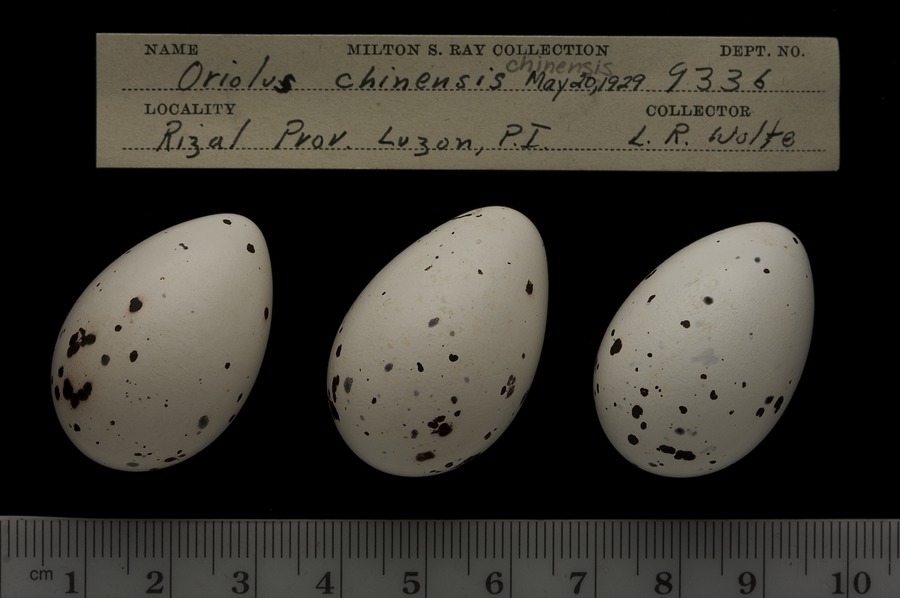 NAME MILTON S. RAY COLLECTION DEPT. NO.
chinensis
Oriolus chinensis May 20, 1929 9336
LOCALITY COLLECTOR
Rizal Prov. Luzon, P.I. L. R. Wolfe
cm 1 2 3 4 5 6 7 8 9 10